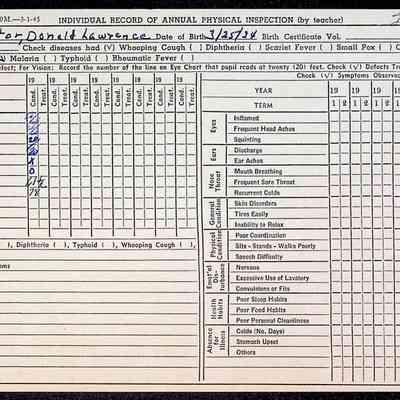 0M.—3-1-45 INDIVIDUAL RECORD OF ANNUAL PHYSICAL INSPECTION (by teacher)
Donald Lawrence Date of Birth 3/25/34 Birth Certificate Vol.
Check diseases had (√) Whooping Cough ( ) Diphtheria ( ) Scarlet Fever ( ) Small Pox ( )
Malaria ( ) Typhoid ( ) Rheumatic Fever ( )
For Vision: Record the number of the line on Eye Chart that pupil reads at twenty (20) feet. Check (√) Defects
Check (√) Symptoms
19 19 19 19 19 19
Cond. Treat. Cond. Treat. Cond. Treat. Cond. Treat. Cond. Treat. Cond. Treat.
YEAR 19 19 19 19
TERM 1 2 1 2 1 2
Eyes
Inflamed
Frequent Head Aches
Squinting
Ears
Discharge
Ear Aches
Nose Throat
Mouth Breathing
Frequent Sore Throat
Recurrent Colds
General Condition
Skin Disorders
Tires Easily
Inability to Relax
Physical Condition
Poor Coordination
Sits - Stands - Walks Poorly
Speech Difficulty
Emot'al Dis-turbance
Nervous
Excessive Use of Lavatory
Convulsions or Fits
Health Habits
Poor Sleep Habits
Poor Food Habits
Poor Personal Cleanliness
Absence for Illness
Colds (No. Days)
Stomach Upset
Others
X
0
78
), Diphtheria ( ), Typhoid ( ), Whooping Cough ( )